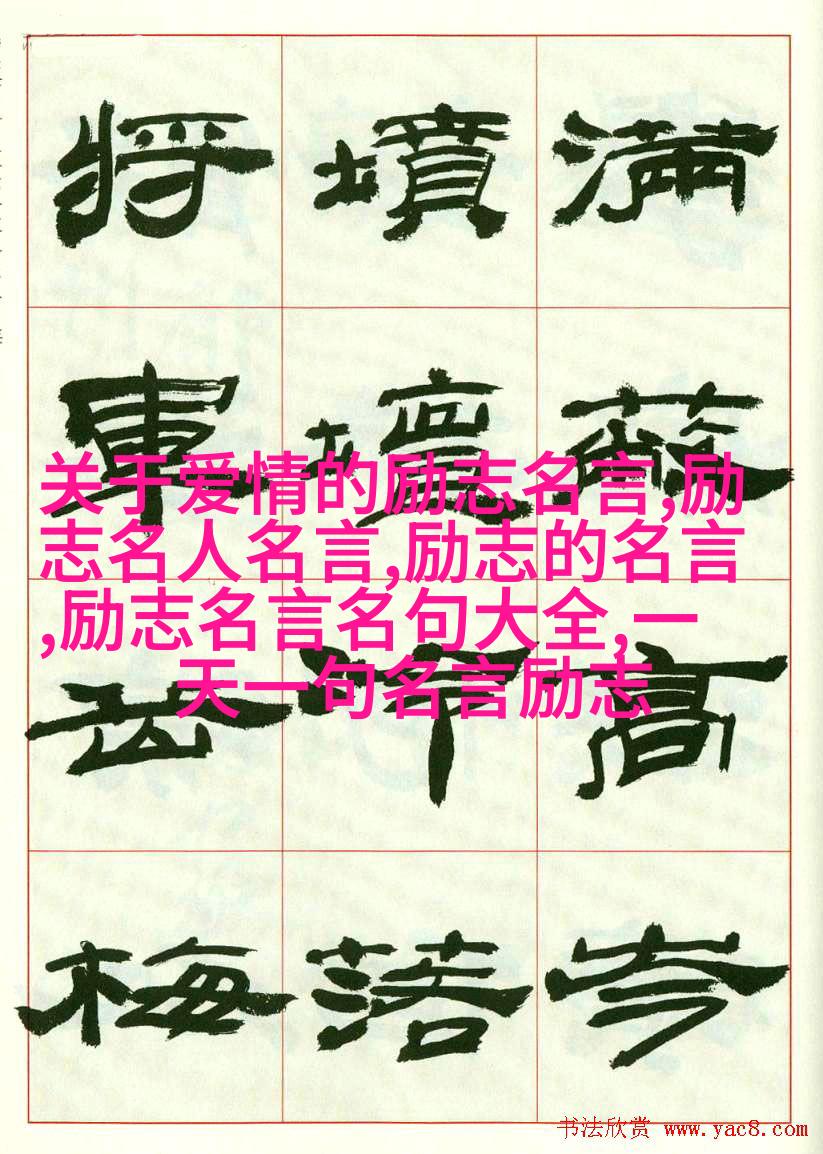 满高岑
墳落
将軍岳梅
关于爱情的励志名言,励
志名人名言,励志的名言
,励志名言名句大全,一
天一句名言励志
书法欣赏 www.yac8.com